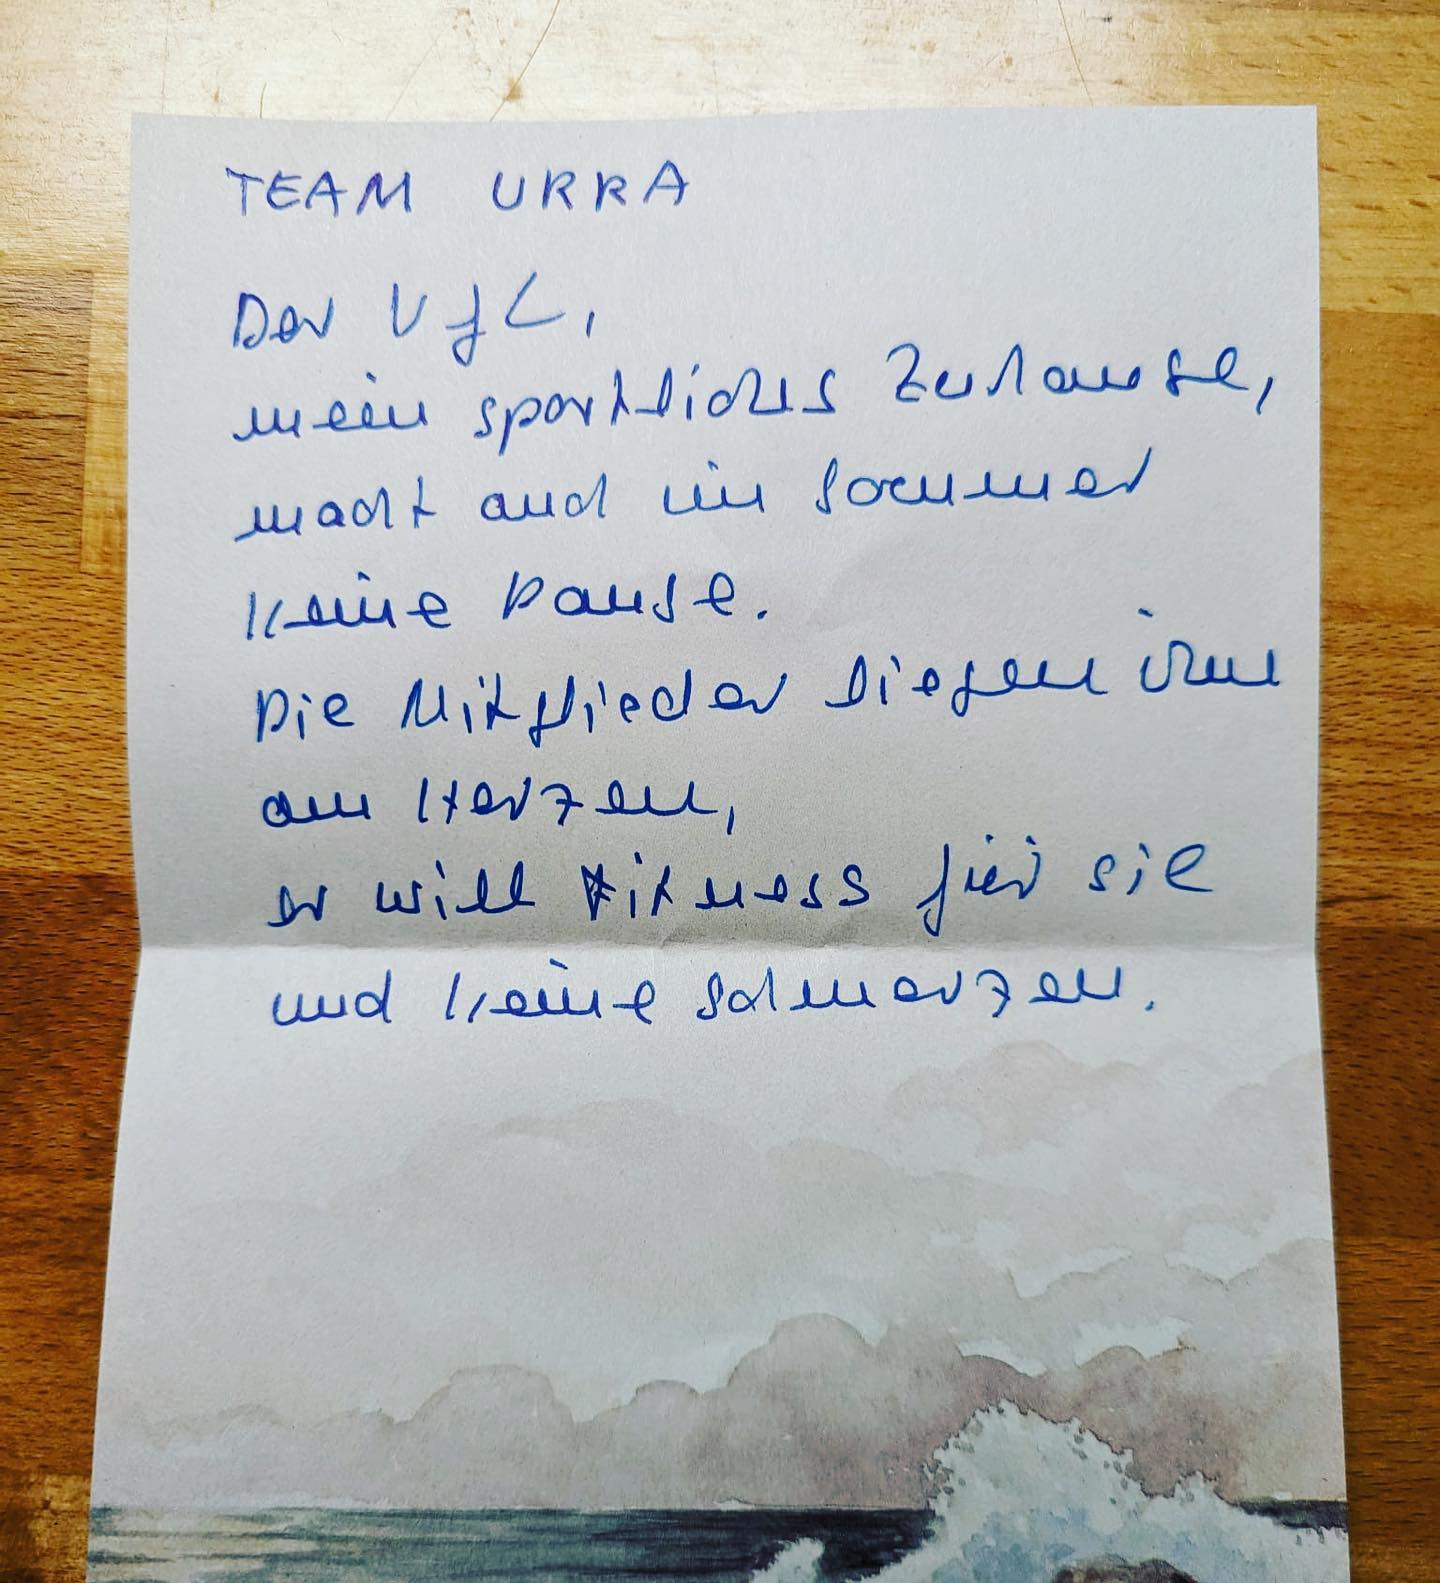 TEAM URRA
Der VfL,
mein sportliches Zuhause,
macht auch im Sommer
keine Pause.
Die Mitglieder liegen ihm
am Herzen,
er will Fitness für sie
und keine Schmerzen.